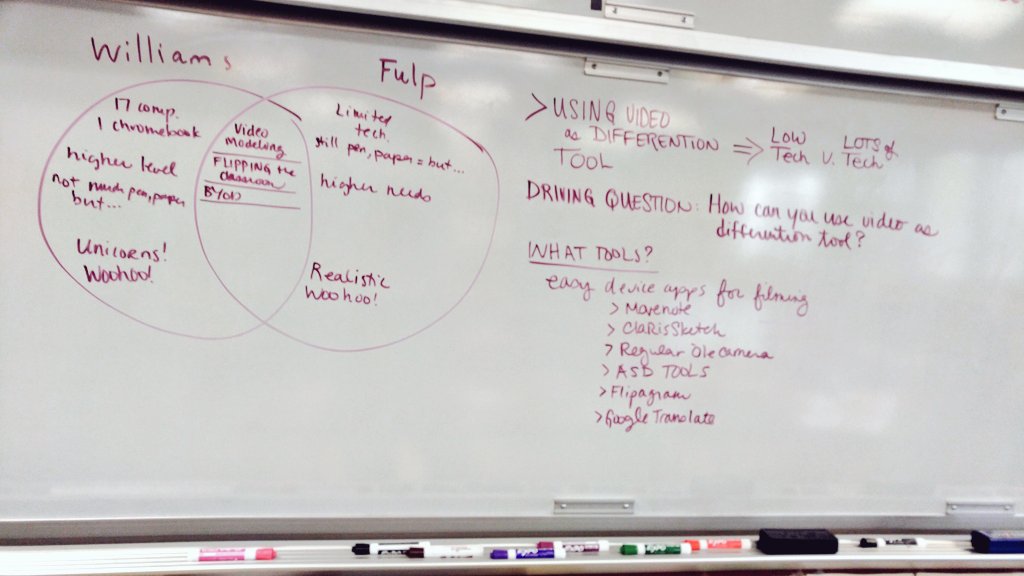 Williams
17 comp.
1 chromebook
higher level
not much pen, paper
but...
Unicorns!
Woohoo!
Video
Modeling
FLIPPING the
classroom
BYOD
Fulp
Limited
tech.
still pen, paper = but...
higher needs
Realistic
Woohoo!
> USING VIDEO
as DIFFERENTION
TOOL
⇒ LOW
Tech v.
LOTS of
Tech
DRIVING QUESTION: How can you use video as
differention tool?
WHAT TOOLS?
easy device apps for filming
> Movenote
> ClaRisSketch
> Regular 'Ole Camera
> ASD TOOLS
> Flipagram
> Google Translate